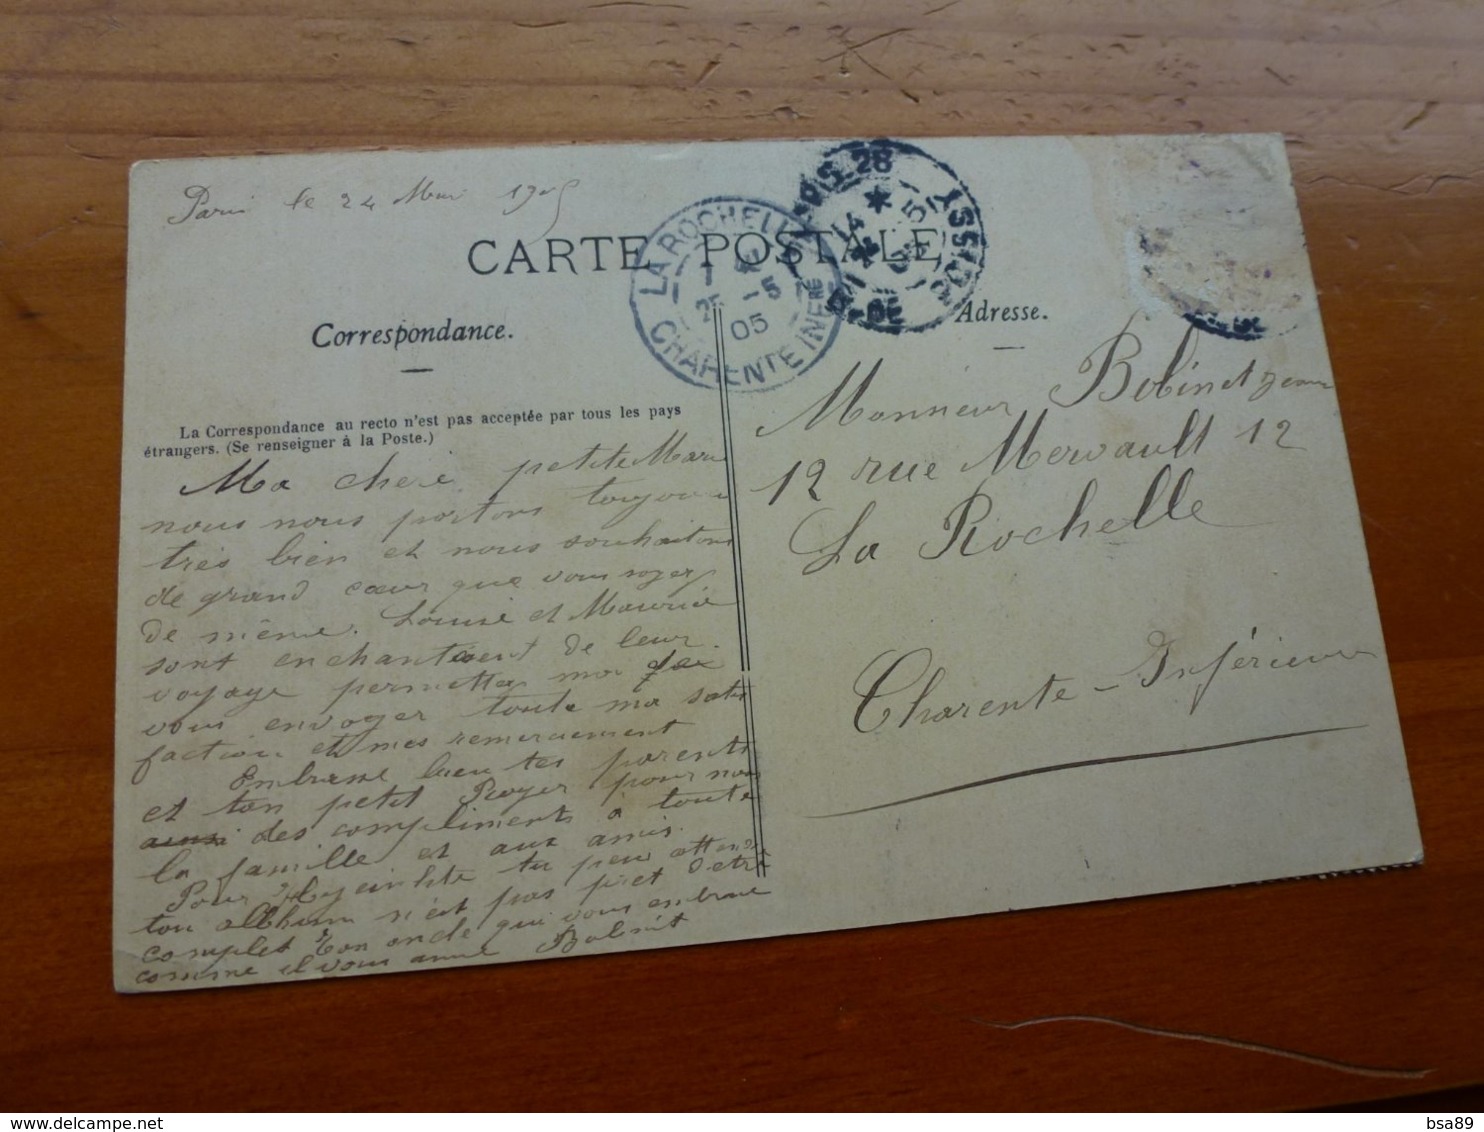 Paris le 24 Mai 1905
CARTE POSTALE
LA ROCHELLE
25 -5
05
CHARENTE INFRE
PARIS 28
Correspondance.
Adresse.
La Correspondance au recto n'est pas acceptée par tous les pays
étrangers. (Se renseigner à la Poste.)
Ma cheré petite Marie
nous nous portons toujours
très bien et nous souhaitons
de grand cœur que vous soyez
de même. Louise et Maurice
sont enchantent de leur
voyage permettez moi
vous envoyer toute ma satis
faction et mes remerciement
Embrasse bien tes parents
et ton petit Roger pour nous
ainsi des compliments à toute
la famille et aux amis.
Pour tu peu attendre
ton album n'est pas prêt d'être
complet Ton oncle qui vous embrasse
comme il vous aime Bobinet
Monsieur Bobinet Jean
12 rue Mervault 12
La Rochelle
Charente-Inférieure
bsa89
bsa89